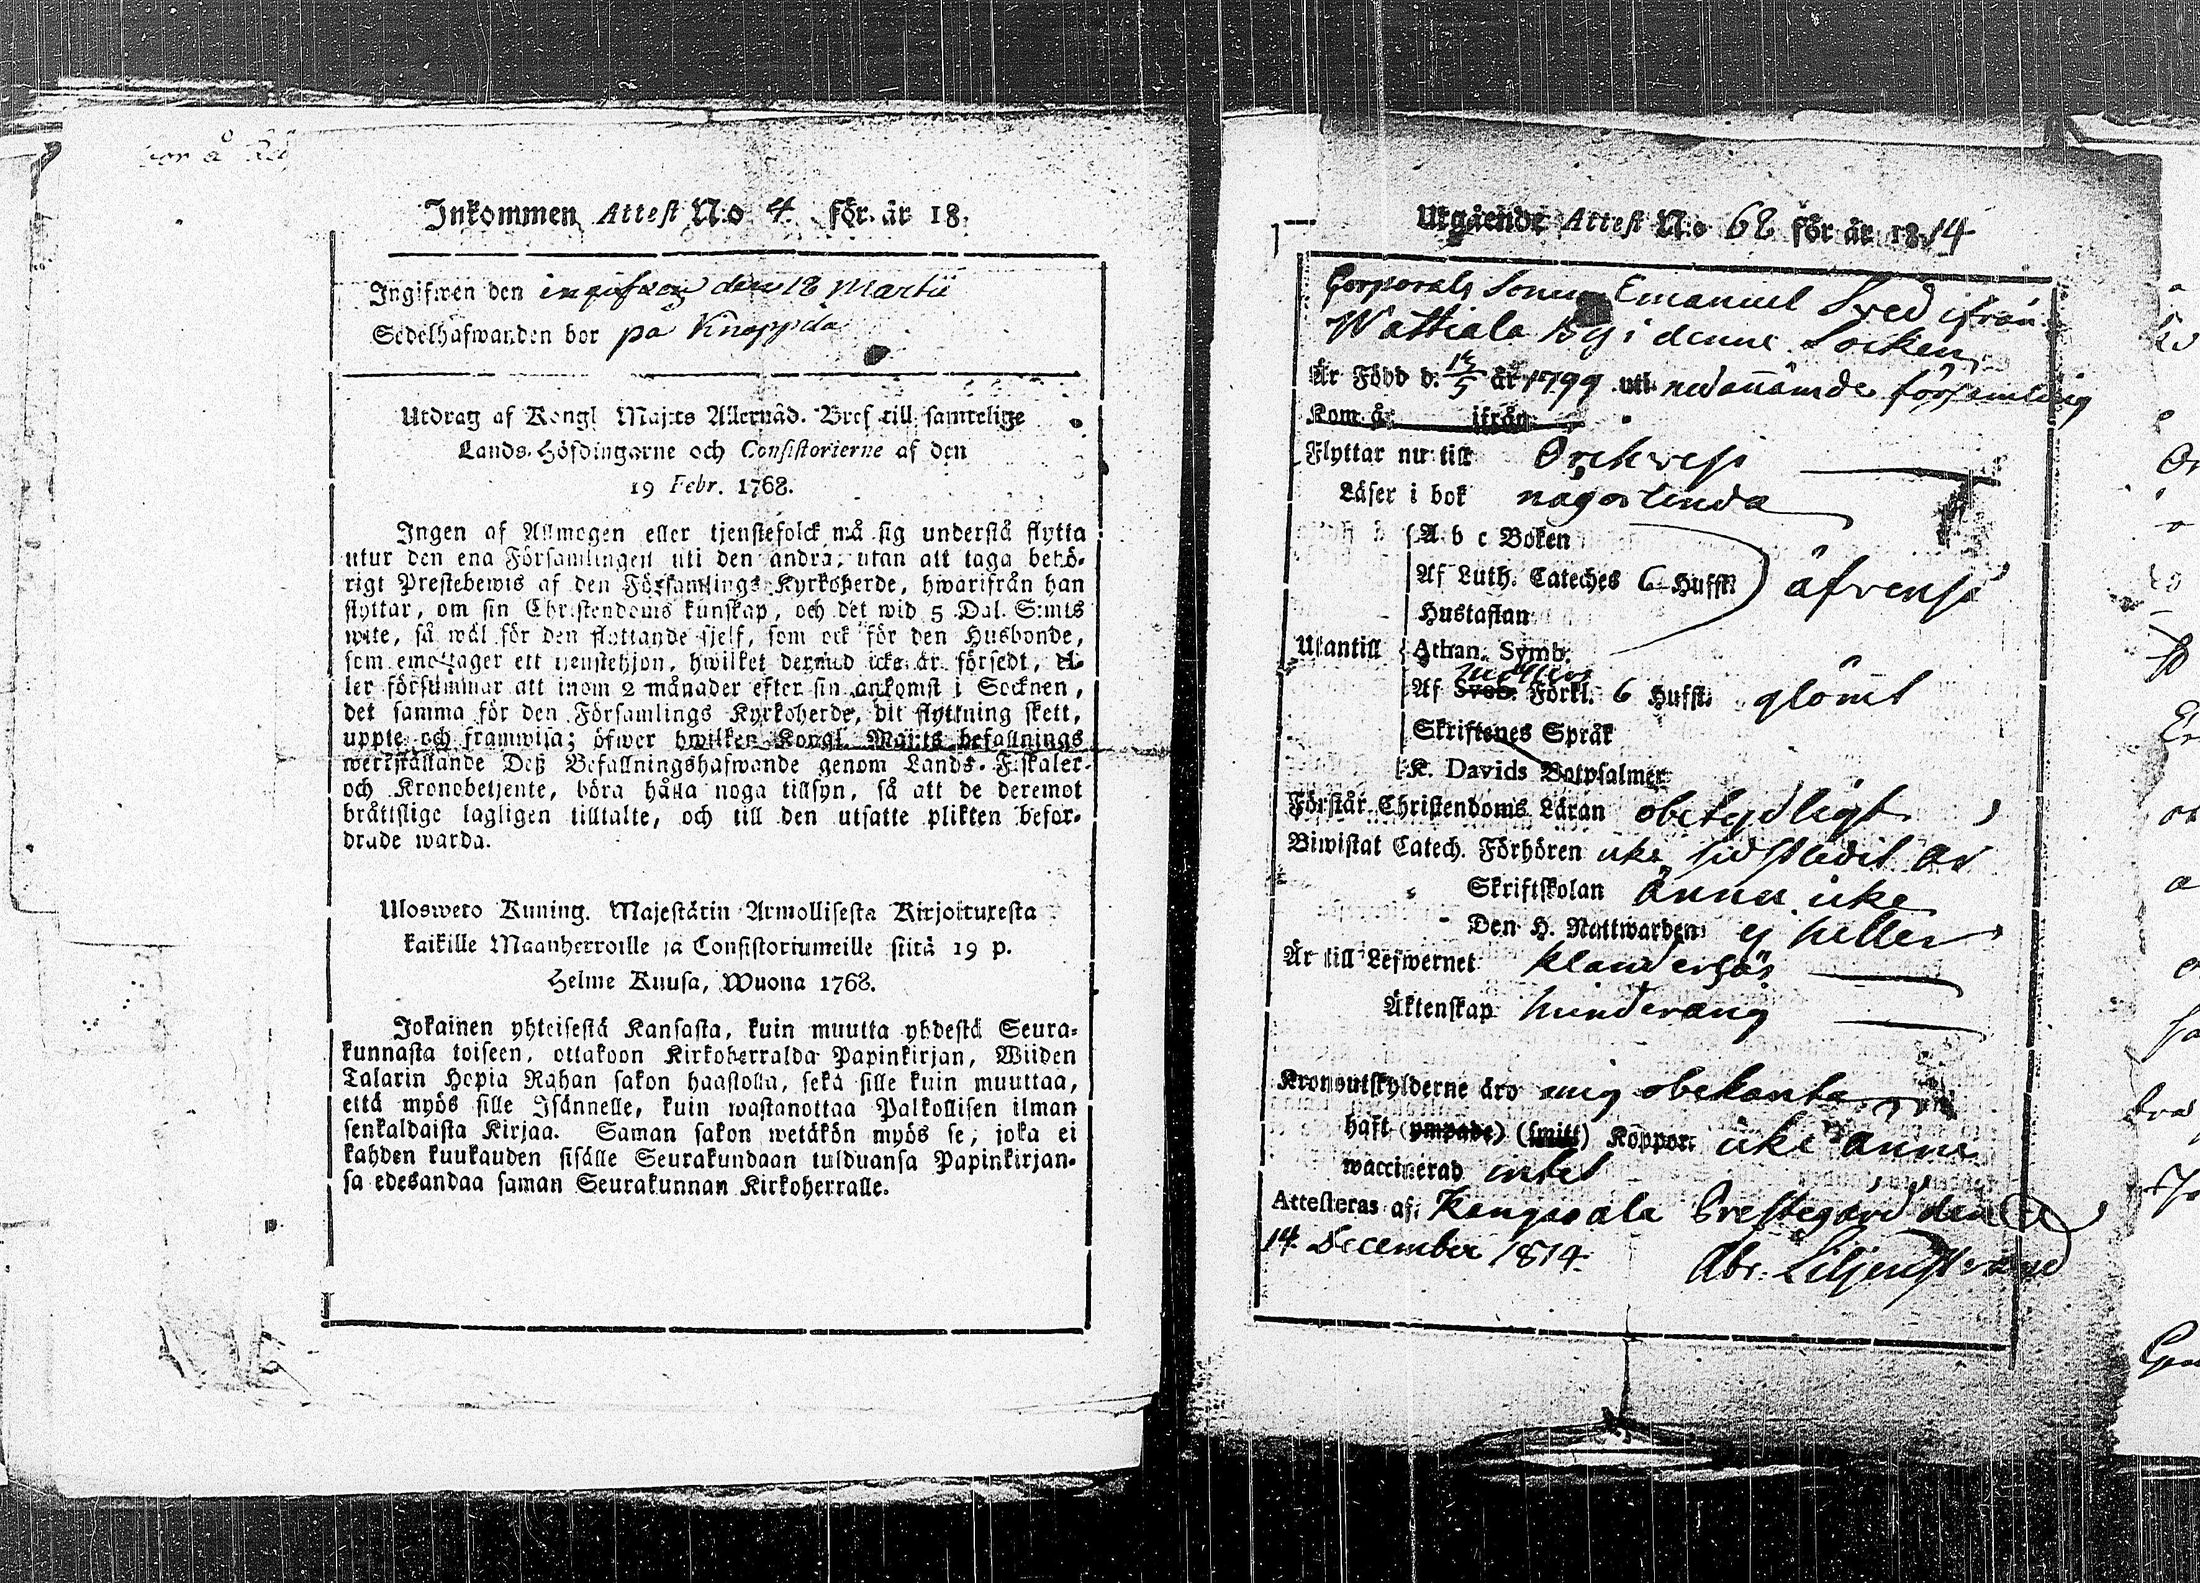 Inkommen Attest N:o 4. för. år 18.
Ingifwen den ingifven den 18 Martii
Sedelhafwanden bor på Knappila
Utdrag af Kongl Maj:ts Allernåd. Bref till samtelige
Lands-Höfdingarne och Consistorierne af den
19 Febr. 1768.
Ingen af Allmogen eller tjenstefolck må sig understå flytta
utur den ena Församlingen uti den andra, utan att taga behö-
rigt Prestebewis af den Församlings Kyrkoherde, hwarifrån han
flyttar, om sin Christendoms kunskap, och det wid 5 Dal. S:mts
wite, så wäl för den flyttande sjelf, som ock för den Husbonde,
som emottager ett tjenstehjon, hwilket dermed icke är försedt, el-
ler försummar att inom 2 månader efter sin ankomst i Socknen,
det samma för den Församlings Kyrkoherde, dit flyttning skett,
uppte och framwisa; öfwer hwilken Kongl. Maj:ts befallnings
werkställande Deß Befallningshafwande genom Lands-Fiskaler
och Kronobetjente, böra hålla noga tillsyn, så att de deremot
bråttslige lagligen tilltalte, och till den utsatte plikten befor-
drade warda.
Ulosweto Kuning. Majestätin Armollisesta Kirjoituxesta
kaikille Maanherroille ja Consistoriumeille siitä 19 p.
Helme Kuusa, Wuona 1768.
Jokainen yhteisestä Kansasta, kuin muutta yhdestä Seura-
kunnasta toiseen, ottakoon Kirkoherralda Papinkirjan, Wiiden
Talarin Hopia Rahan sakon haastolla, sekä sille kuin muuttaa,
että myös sille Isännelle, kuin wastanottaa Palkollisen ilman
senkaldaista Kirjaa. Saman sakon wetäkön myös se, joka ei
kahden kuukauden sisälle Seurakundaan tulduansa Papinkirjan-
sa edesandaa saman Seurakunnan Kirkoherralle.
Utgående Attest N:o 62 för år 1814
Corporals Sonen Emanuel Sved ifrån
Wattiala By i denne Socken,
Är Född d. 12/5 år 1799 uti nedannämde församling
Kom år ifrån
Flyttar nu till Orihvesi
Läser i bok någorlunda
A b c Boken
Af Luth. Cateches 6 Hufst. äfvenså
Hustaflan
Utantill Athan. Symb.
Af Sveb. Förkl. 6 Hufst. glömt
Skriftenes Språk
K. Davids Botpsalmer
Förstår Christendoms Läran obetydligt
Biwistat Catech. Förhören icke sidstledit år
Skriftskolan ännu icke
Den H. Nattwarden ej heller
Är till Lefwernet klanderfäs
Äktenskap hinderang
Kronoutskylderne äro mig obekanta
haft (ympade) (smitt) Koppor icke ännu
waccinerad intet
Attesteras af Kangasala Prestegård den
14 December 1814.
Abr. Liljenstrand